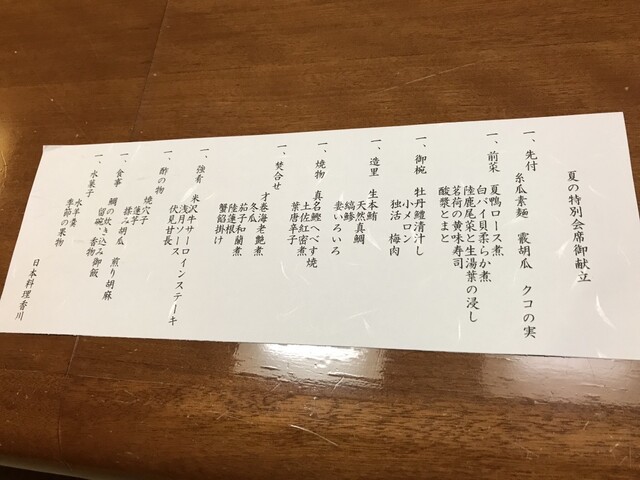 夏の特別会席御献立
一、先付
糸瓜素麺 霰胡瓜 クコの実
一、前菜 夏鴨ロース煮
白バイ貝柔らか煮
陸鹿尾菜と生湯葉の浸し
茗荷の黄味寿司
酸漿とまと
一、御椀 牡丹鱧清汁し
小メロン
独活 梅肉
一、造里 生本鮪
天然真鯛
縞鯵
妻いろいろ
一、焼物 真名鰹へべす焼
土佐紅蜜煮
葉唐辛子
一、焚合せ
才巻海老艶煮
冬瓜
茄子和蘭煮
陸蓮根
蟹餡掛け
一、強肴 米沢牛サーロインステーキ
浅月ソース
伏見甘長
一、酢の物
焼穴子
蓮芋
揉み胡瓜 煎り胡麻
一、食事 鯛の炊き込み御飯
留碗、香物
一、水菓子
水羊羹
季節の果物
日本料理香川